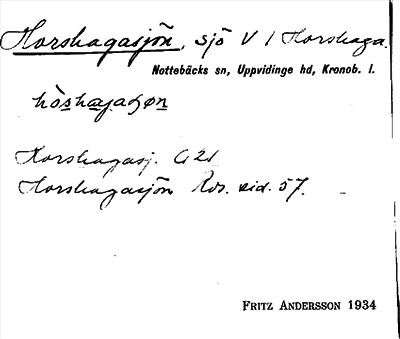 Horshagasjön, sjö V / Horshaga.
Nottebäcks sn, Uppvidinge hd, Kronob. l.
Horshagasj. G 21
Horshagasjön Rds. sid. 57.
FRITZ ANDERSSON 1934